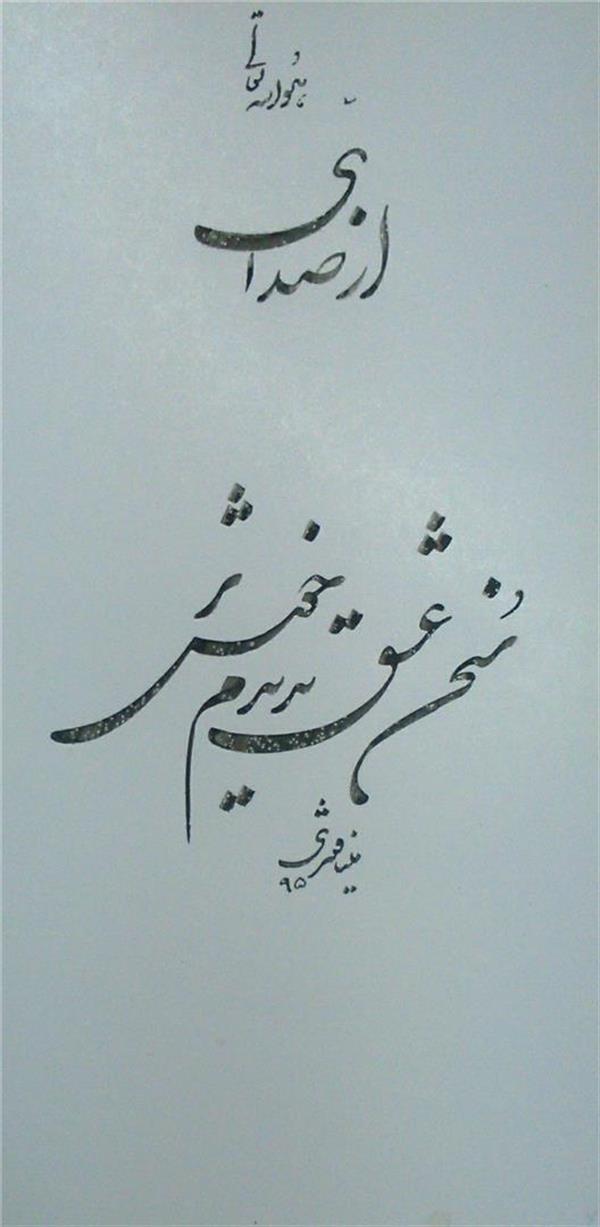 هوالله تعالی
از صدای
سخن عشق ندیدم خوشتر
۹۵